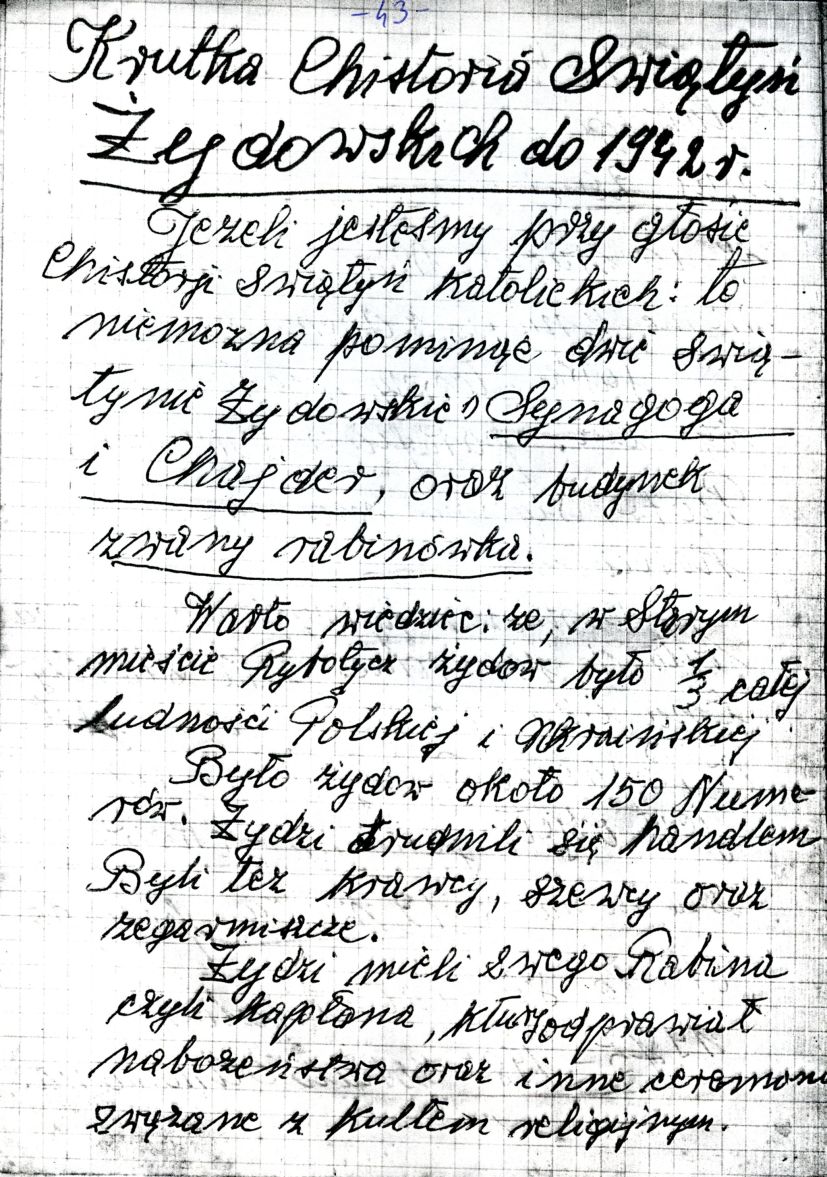 -43-
Krutka Chistoria Swiątyń
Żydowskich do 1942 r.
Jezeli jesteśmy przy głosie
Chistorji Swiątyń Katolickich: to
niemozna pominąć dwie swią-
tynie Żydowskie, Synagoga
i Chajder, oraz budynek
zwany rabinówka.
Warto wiedzieć: ze, w Starym
mieście Rybotycz żydow było 1/3 całej
ludności Polskiej i Ukraińskiej
Było żydow około 150 Nume-
rów. Żydzi trudnili się handlem
Byli tez krawcy, szewcy oraz
zegarmiszcze.
Żydzi mieli swego Rabina
czyli kapłana, ktury odprawiał
nabozeństwa oraz inne ceremoni
zwązane z kultem religijnym.